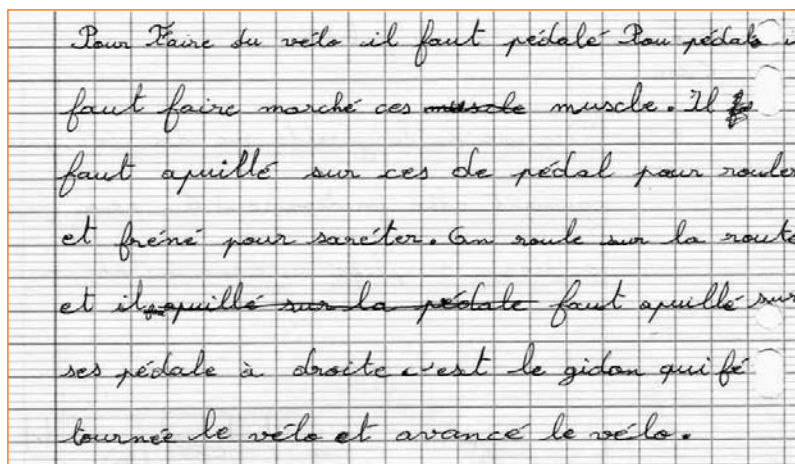 Pour Faire du vélo il faut pédalé Pou pédalé i
faut faire marché ces muscle muscle. Il
faut apuillé sur ces de pédal pour rouler
et fréné pour saréter. On roule sur la route
et il apuillé sur la pédale faut apuillé sur
ses pédale à droite c'est le gidon qui fé
tournée le vélo et avancé le vélo.